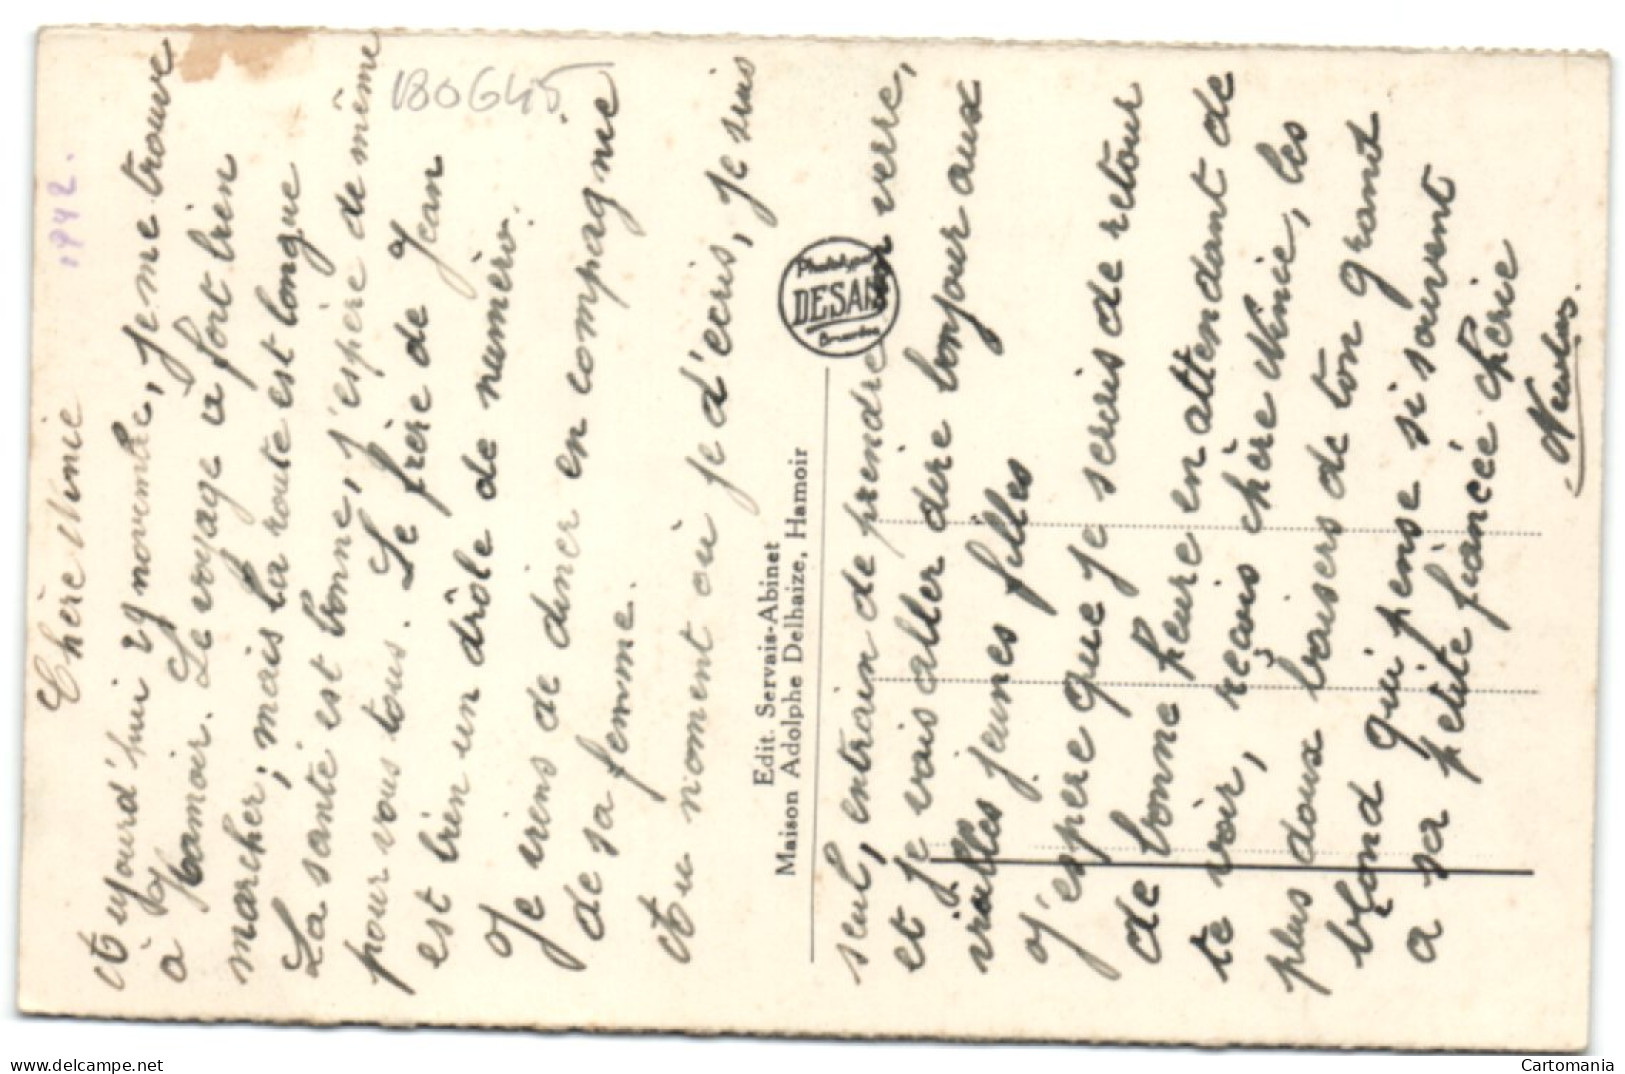 1942.
180645
Chère Ninie
Aujourd'hui 29 novembre, je me trouve
à Hamoir. Le voyage a fort bien
marcher; mais la route est longue
La santé est bonne, j'espère de même
pour vous tous. Le frère de Jean
est bien un drôle de numéro.
Je viens de diner en compagnie
de sa femme.
Au moment où je d'écris, je suis
Edit. Servais-Abinet
Maison Adolphe Delhaize, Hamoir
DESAIX
seul, entrain de prendre un verre,
et je vais aller dire bonjour aux
vieilles jeunes filles
J'espère que je serais de retour
de bonne heure en attendant de
te voir, reçois chère Ninie, les
plus doux baisers de ton grant
blond qui pense si souvent
a sa petite fiancée cherie
delcampe.net
Cartomania